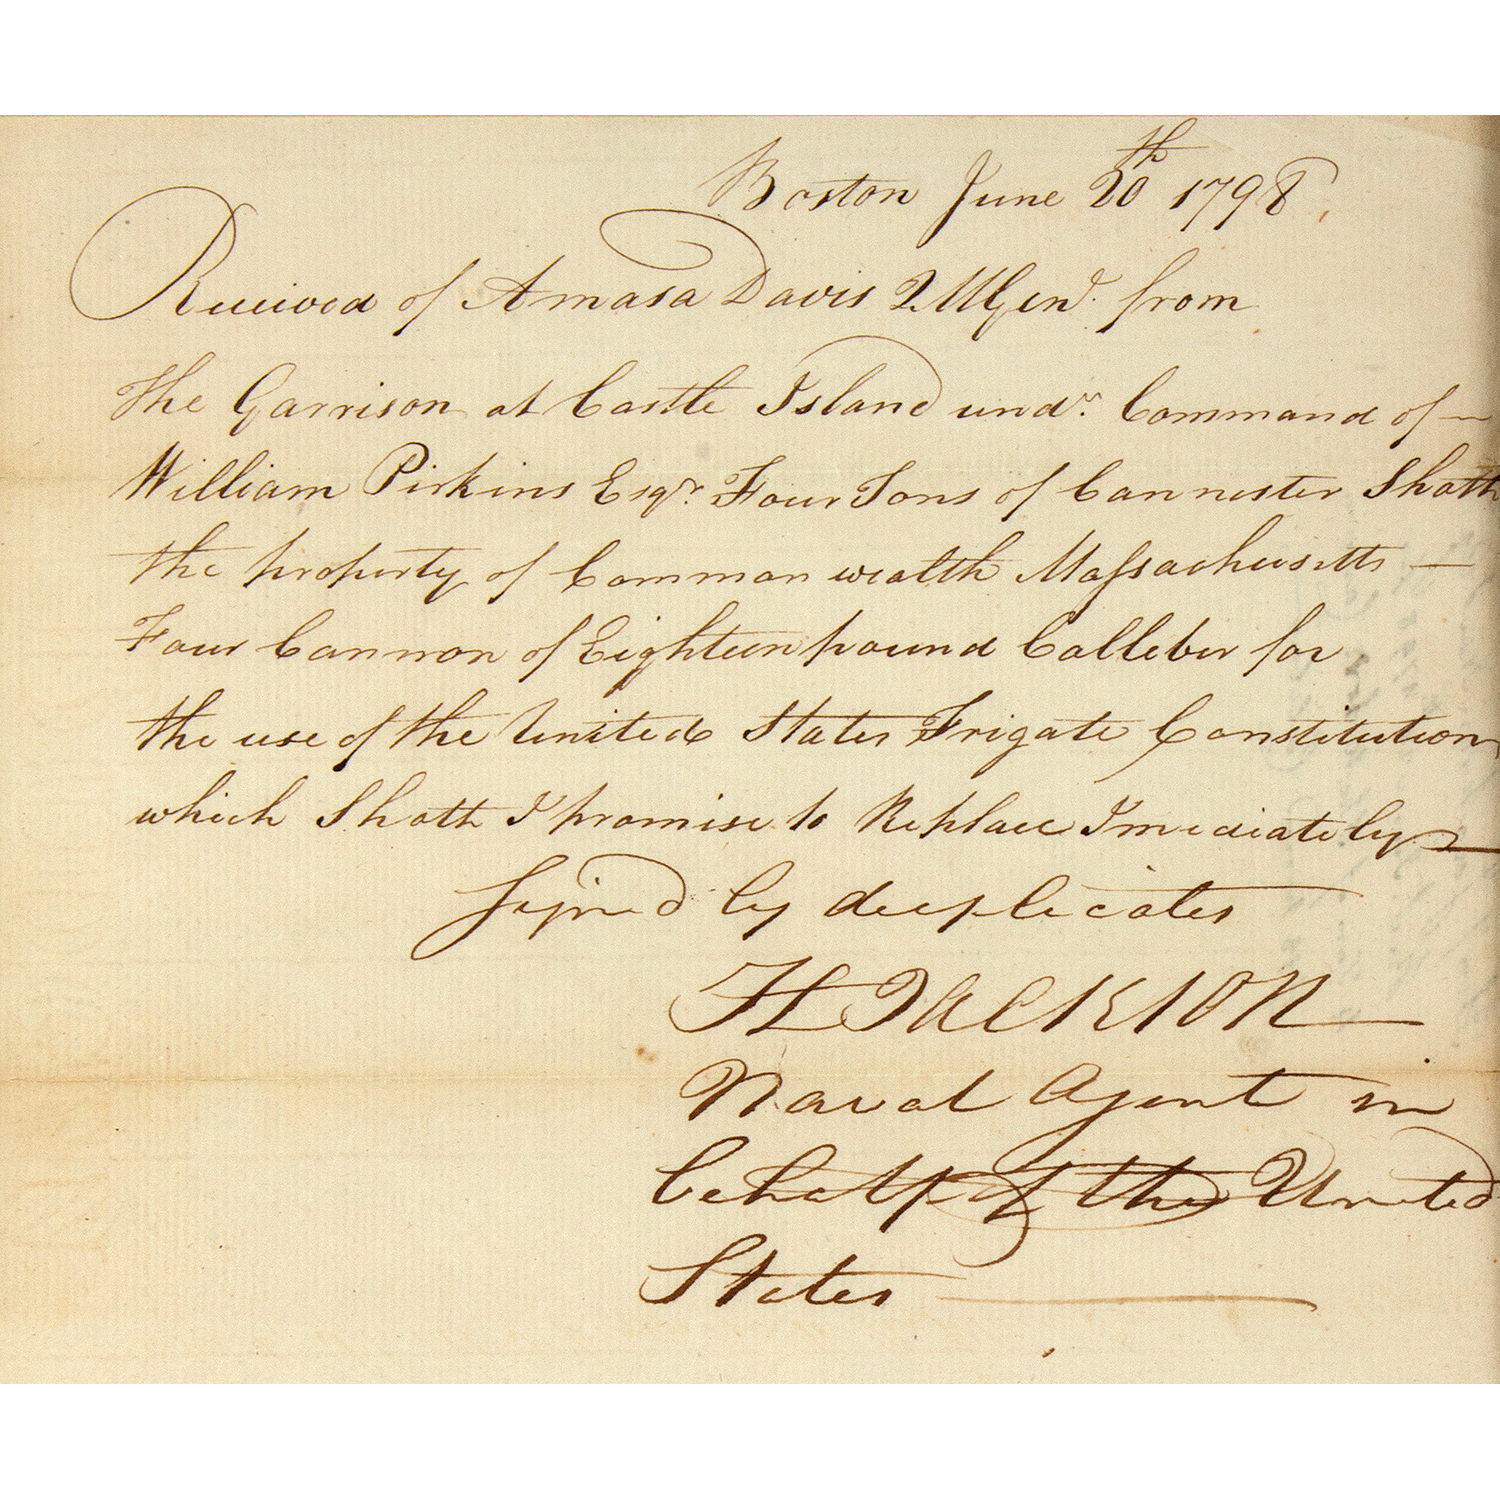 Boston June 20th 1798.
Received of Amasa Davis QMGenl. from
the Garrison at Castle Island undr. Command of —
William Perkins Esqr. Four Tons of Cannester Shott
the property of Common wealth Massachusetts —
Four Cannon of Eighteen pound Calleber for
the use of the United States Frigate Constitution
which Shott I promise to Replace Imediately
Signed by deuplicates
H JACKSON
Naval Agent in
behalf of the United
States —